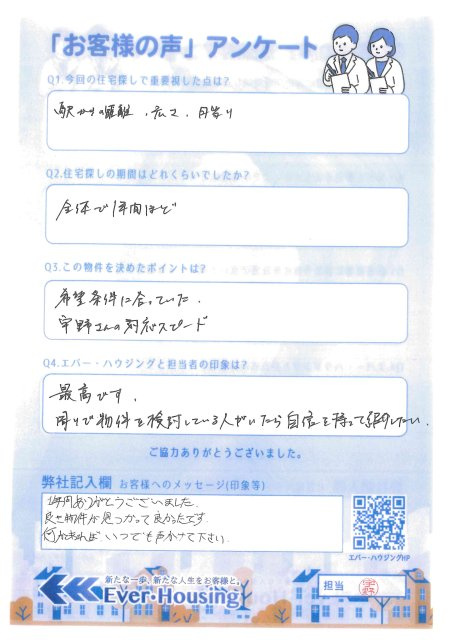 「お客様の声」アンケート
Q1.今回の住宅探しで重要視した点は?
駅からの距離、広さ、日当り
Q2.住宅探しの期間はどれくらいでしたか?
全体で1年間ほど
Q3.この物件を決めたポイントは?
希望条件に合っていた。
宇野さんの対応スピード
Q4.エバー・ハウジングと担当者の印象は?
最高です。
周りで物件を検討している人がいたら自信を持って紹介したい。
ご協力ありがとうございました。
弊社記入欄 お客様へのメッセージ(印象等)
1年間ありがとうございました。
良い物件が見つかって良かったです。
何かあれば、いつでも声かけて下さい。
エバー・ハウジングHP
新たな一歩、新たな人生をお客様と。
Ever-Housing
担当 宇野